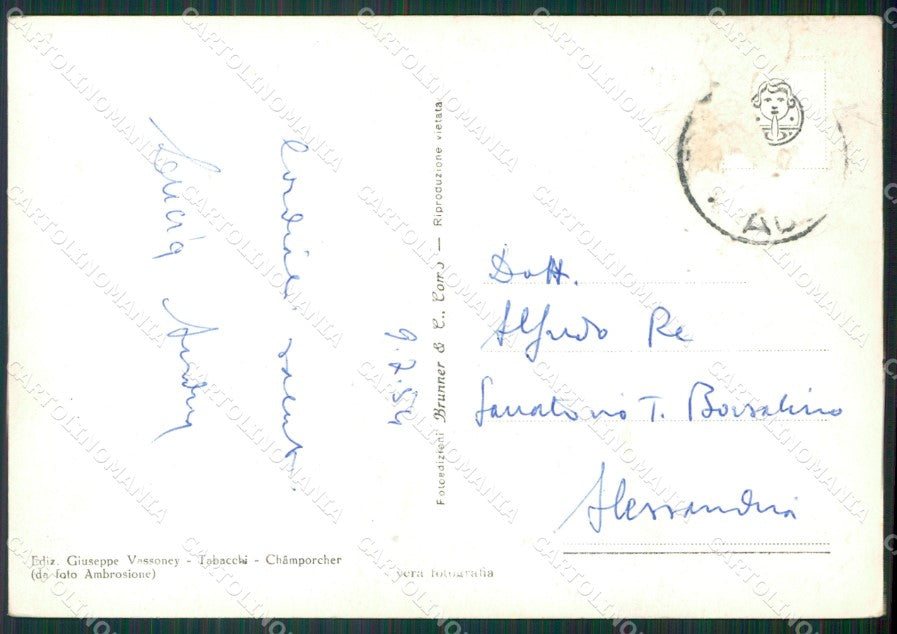 Cordiali saluti.
9.7.54
Dott.
Alfredo Re
Sanatorio T. Borsalino
Alessandria
Fotoedizioni Brunner & C., Como — Riproduzione vietata
Ediz. Giuseppe Vassoney - Tabacchi - Châmporcher
(da foto Ambrosione)
vera fotografia
CARTOLINOMANIA